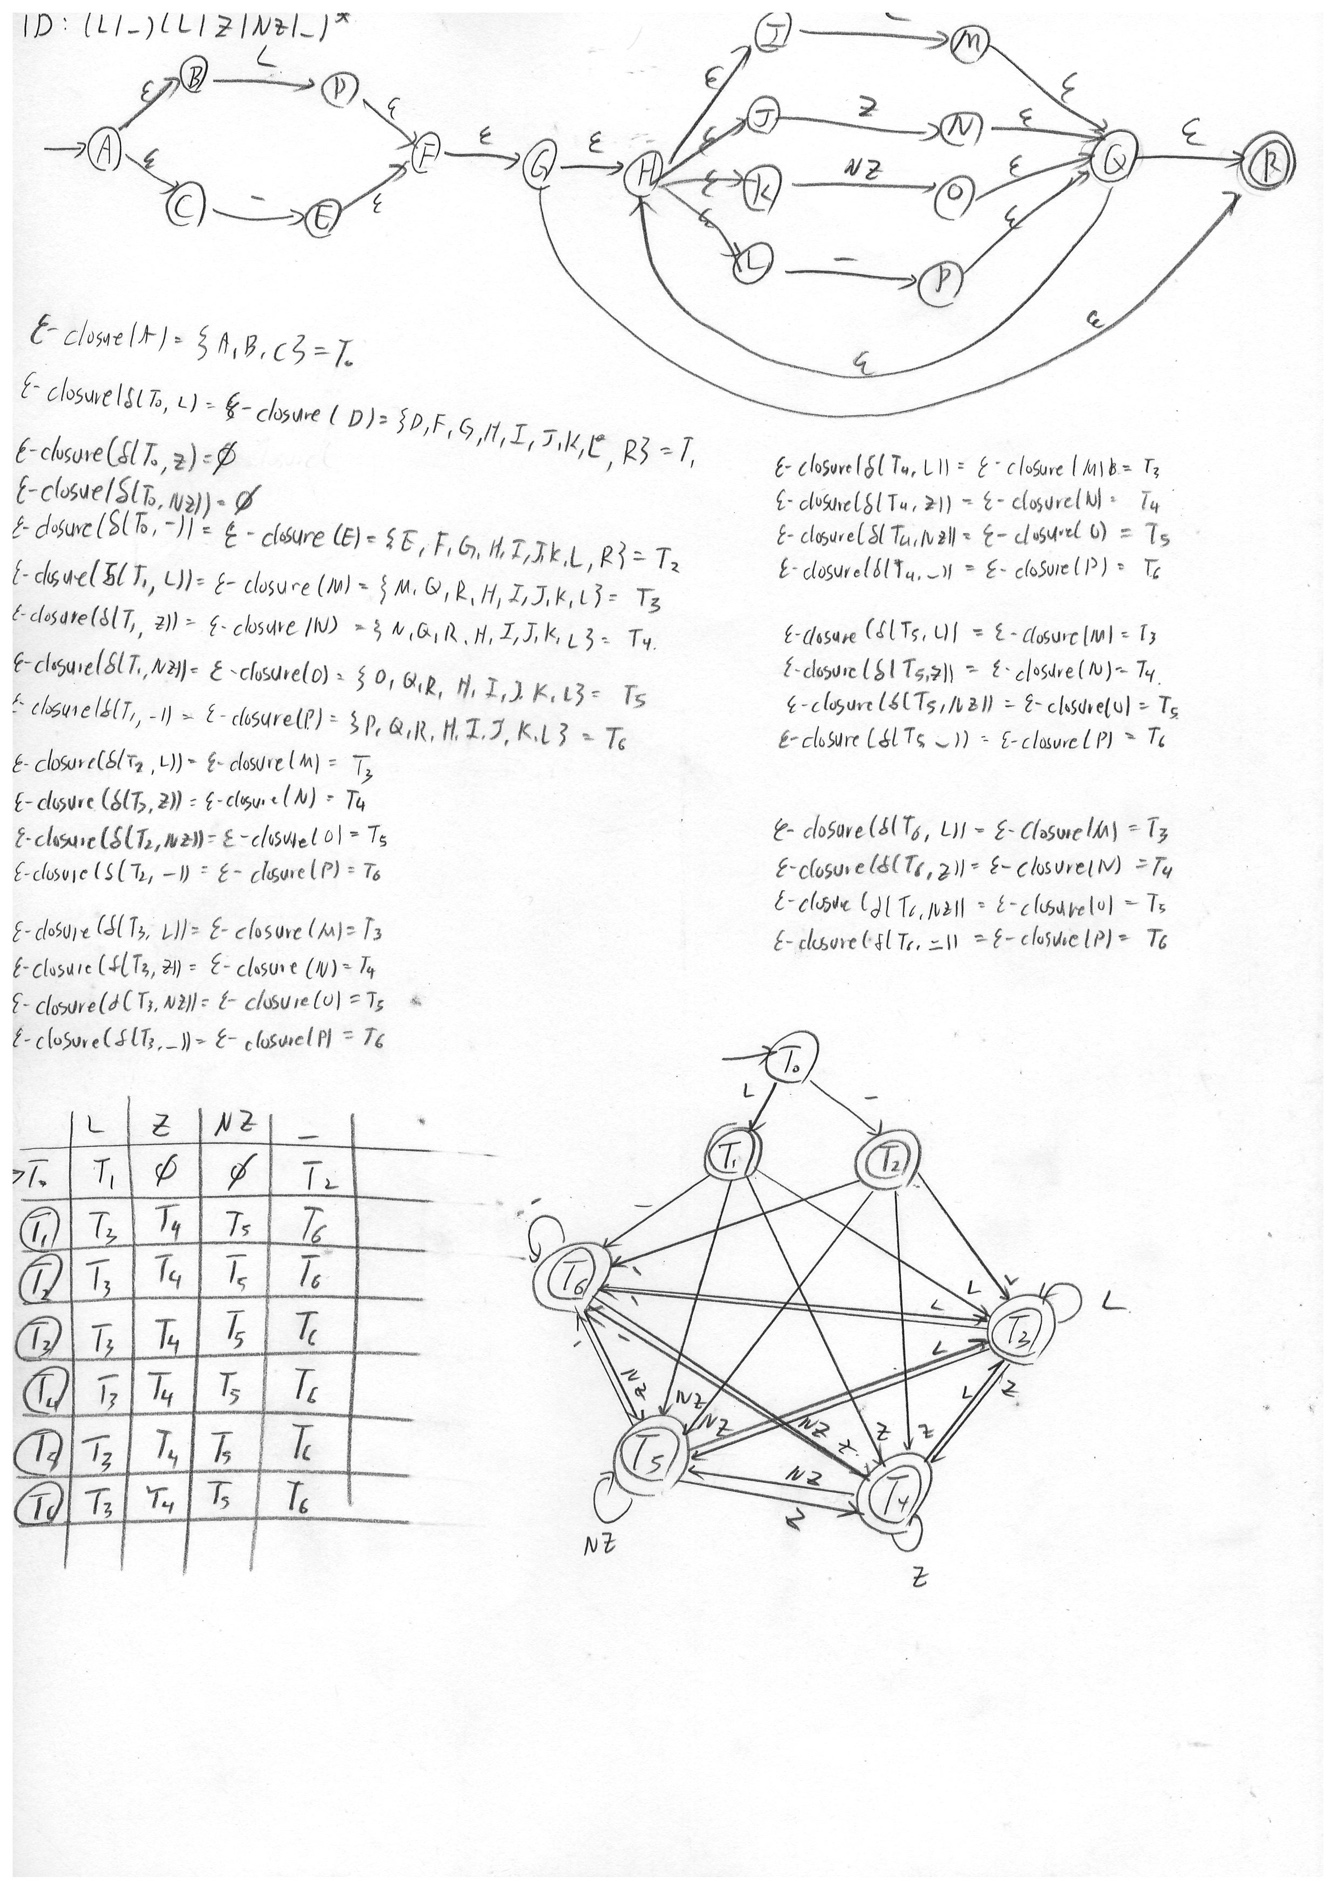 ID: (L|_)(L|Z|NZ|_)*
A ε B L D ε F ε G ε H
ε C - E ε
ε I - M ε
ε J Z N ε
ε K NZ O ε
ε L - P ε
Q ε R
ε
ε
ε-closure(A) = {A, B, C} = T0
ε-closure(δ(T0, L) = ε-closure(D) = {D, F, G, H, I, J, K, L, R} = T1
ε-closure(δ(T0, Z) = ∅
ε-closure(δ(T0, NZ)) = ∅
ε-closure(δ(T0, -)) = ε-closure(E) = {E, F, G, H, I, J, K, L, R} = T2
ε-closure(δ(T1, L)) = ε-closure(M) = {M, Q, R, H, I, J, K, L} = T3
ε-closure(δ(T1, Z)) = ε-closure(N) = {N, Q, R, H, I, J, K, L} = T4
ε-closure(δ(T1, NZ)) = ε-closure(O) = {O, Q, R, H, I, J, K, L} = T5
ε-closure(δ(T1, -)) = ε-closure(P) = {P, Q, R, H, I, J, K, L} = T6
ε-closure(δ(T2, L)) = ε-closure(M) = T3
ε-closure(δ(T2, Z)) = ε-closure(N) = T4
ε-closure(δ(T2, NZ)) = ε-closure(O) = T5
ε-closure(δ(T2, -)) = ε-closure(P) = T6
ε-closure(δ(T3, L)) = ε-closure(M) = T3
ε-closure(δ(T3, Z)) = ε-closure(N) = T4
ε-closure(δ(T3, NZ)) = ε-closure(O) = T5
ε-closure(δ(T3, _)) = ε-closure(P) = T6
ε-closure(δ(T4, L)) = ε-closure(M) = T3
ε-closure(δ(T4, Z)) = ε-closure(N) = T4
ε-closure(δ(T4, NZ)) = ε-closure(O) = T5
ε-closure(δ(T4, _)) = ε-closure(P) = T6
ε-closure(δ(T5, L)) = ε-closure(M) = T3
ε-closure(δ(T5, Z)) = ε-closure(N) = T4
ε-closure(δ(T5, NZ)) = ε-closure(O) = T5
ε-closure(δ(T5 _)) = ε-closure(P) = T6
ε-closure(δ(T6, L)) = ε-closure(M) = T3
ε-closure(δ(T6, Z)) = ε-closure(N) = T4
ε-closure(δ(T6, NZ)) = ε-closure(O) = T5
ε-closure(δ(T6, _)) = ε-closure(P) = T6
L Z NZ _
T0 T1 ∅ ∅ T2
T1 T3 T4 T5 T6
T2 T3 T4 T5 T6
T3 T3 T4 T5 T6
T4 T3 T4 T5 T6
T5 T3 T4 T5 T6
T6 T3 T4 T5 T6
T0
L -
T1 T2
- -
T6 - L L L T3 L
- - L L Z
NZ NZ NZ NZ Z Z Z
T5 NZ T4
Z
NZ Z